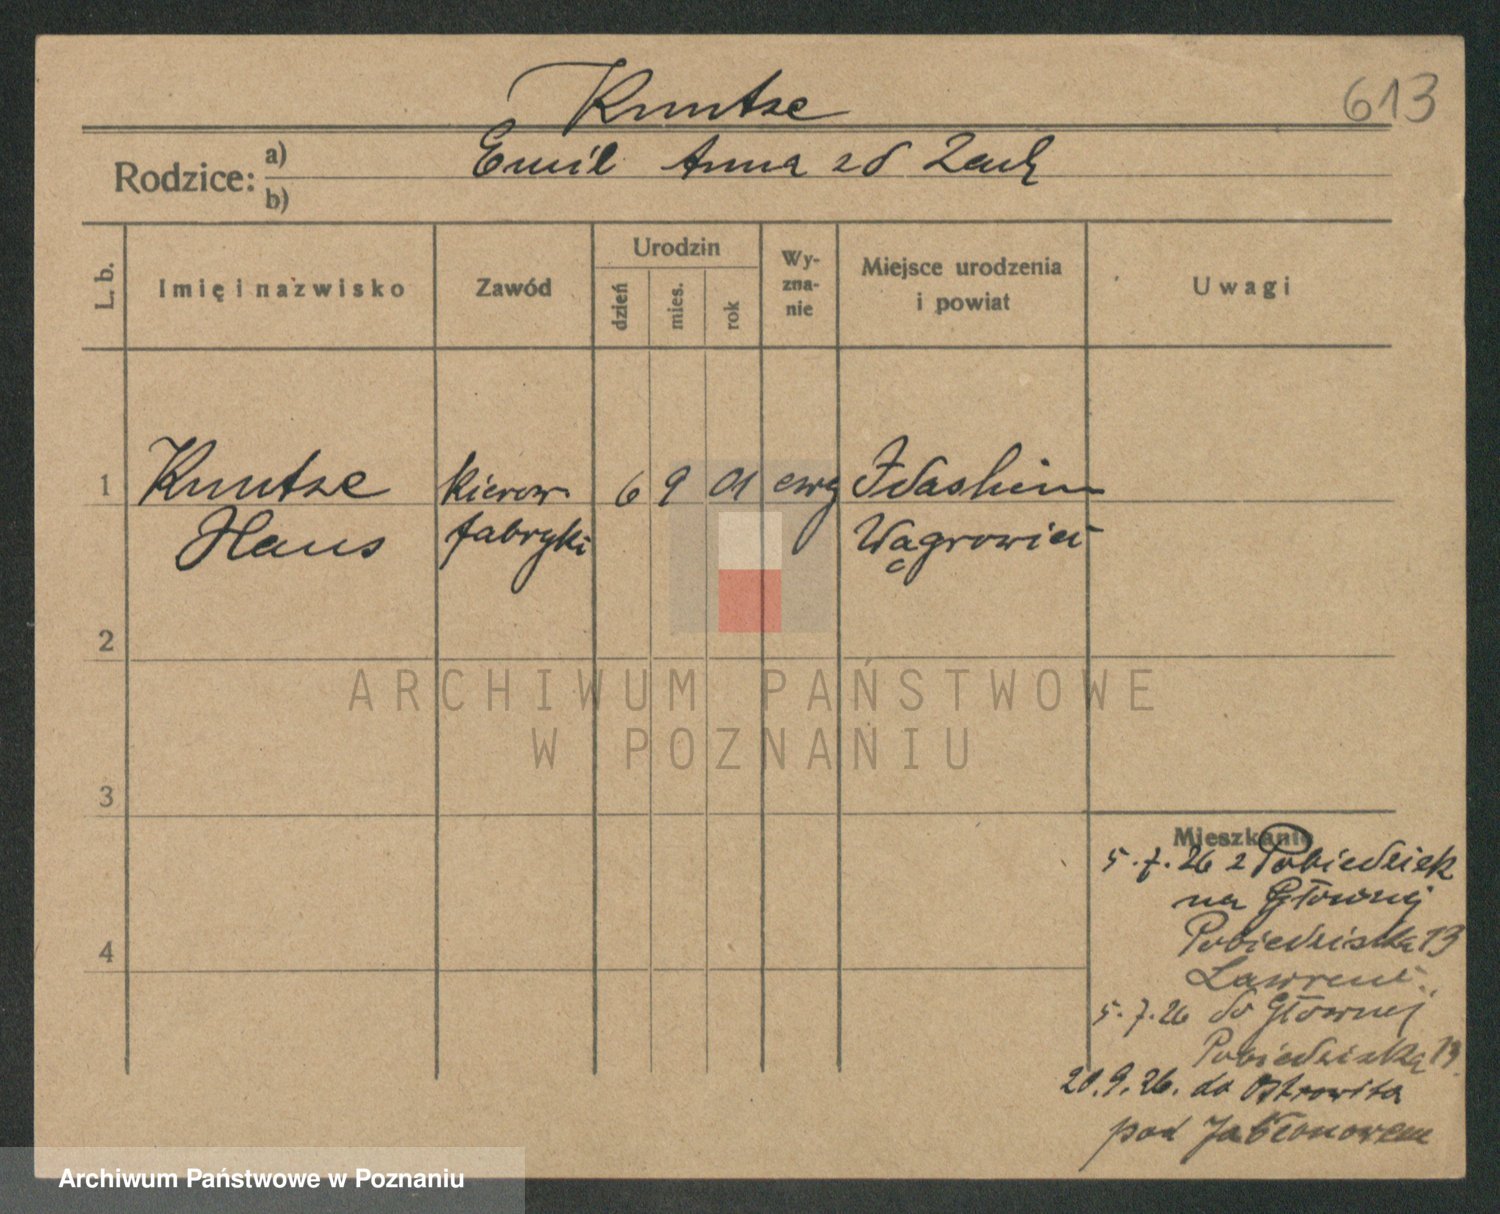 613
Kuntze
Rodzice: a) Emil Anna zd
b)
L. b. Imię i nazwisko Zawód Urodzin dzień mies. rok Wyznanie Miejsce urodzenia i powiat Uwagi
1 Kuntze kierow. 6 9 01 ewg Idasheim
Hans fabryki Wągrowiec
2
ARCHIWUM PAŃSTWOWE
W POZNANIU
3
Mieszkanie
5.7.26 z Pobiedzisk
na Głównej
Pobiedziska 13
5.7.26 do Głównej
Pobiedziska 13
4
20.9.26. do Ostrowita
pod Jabłonowem
Archiwum Państwowe w Poznaniu